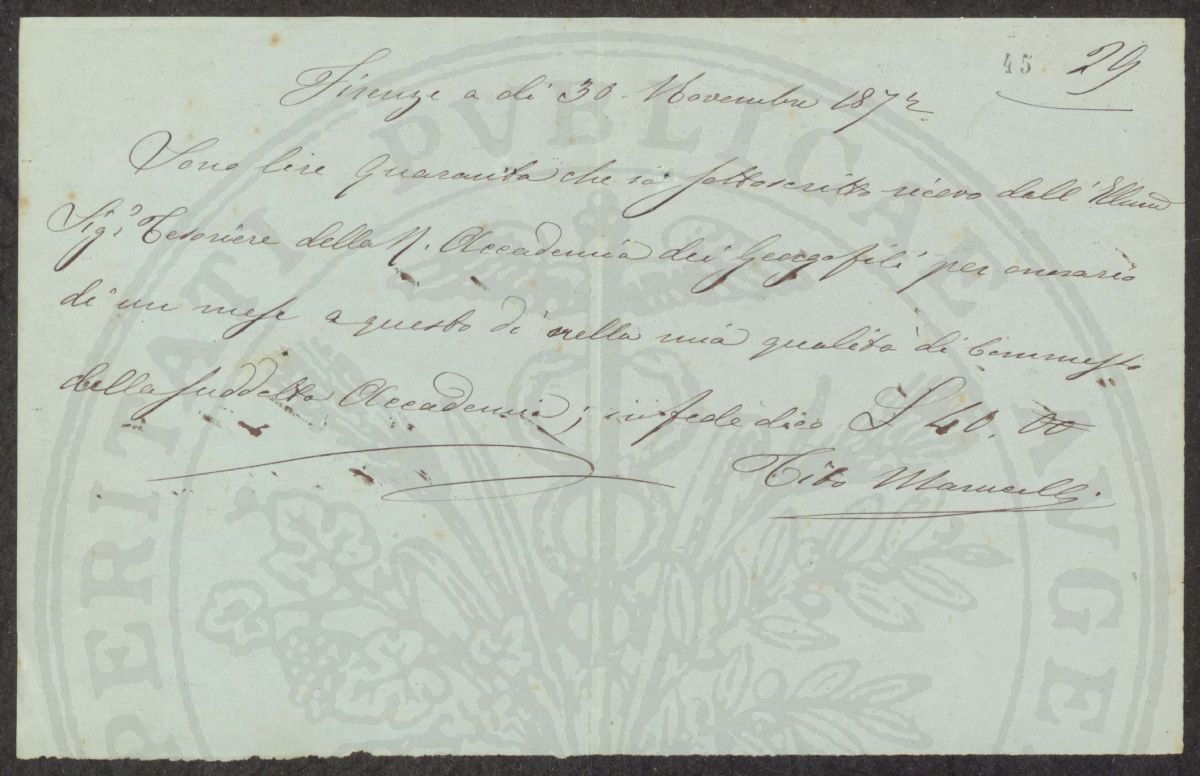 45 29
Firenze a dì 30 Novembre 1872
Sono lire Quaranta che io sottoscritto ricevo dall'Illmo
Sigr Tesoriere della R. Accademia dei Georgofili per onorario
di un mese a questo dì nella mia qualità di Commesso
della suddetta Accademia; in fede dico L 40. 00
Tito Marucelli
PERITATI PVBLICAE AVGE